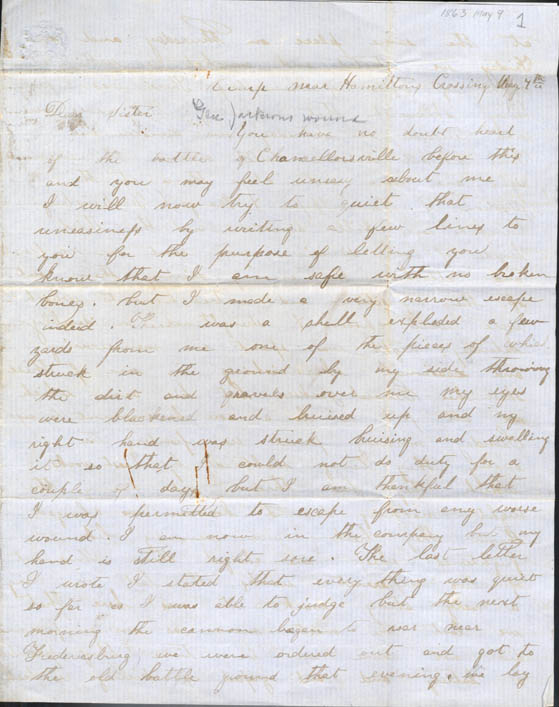 1863 May 9
1
Camp near Hamiltons Crossing May 9th
Dear Sister Gen Jacksons wound
You have no doubt heard
of the battle of Chancellorsville before this
and you may feel uneasy about me
I will now try to quiet that
uneasiness by writing a few lines to
you for the purpose of letting you
know that I am safe with no broken
bones. but I made a very narrow escape
indeed. There was a shell exploded a few
yards from me one of the pieces of which
struck in the ground by my side throwing
the dirt and gravels over me my eyes
were blackened and bruised up and my
right hand was struck bruising and swelling
it so that I could not do duty for a
couple of days but I am thankful that
I was permitted to escape from any worse
wound. I am now in the company but my
hand is still right sore. The last letter
I wrote I stated that every thing was quiet
so far as I was able to judge but the next
morning the cannon began to roar near
Fredericksburg we were ordered out and got to
the old battle ground that evening. we lay